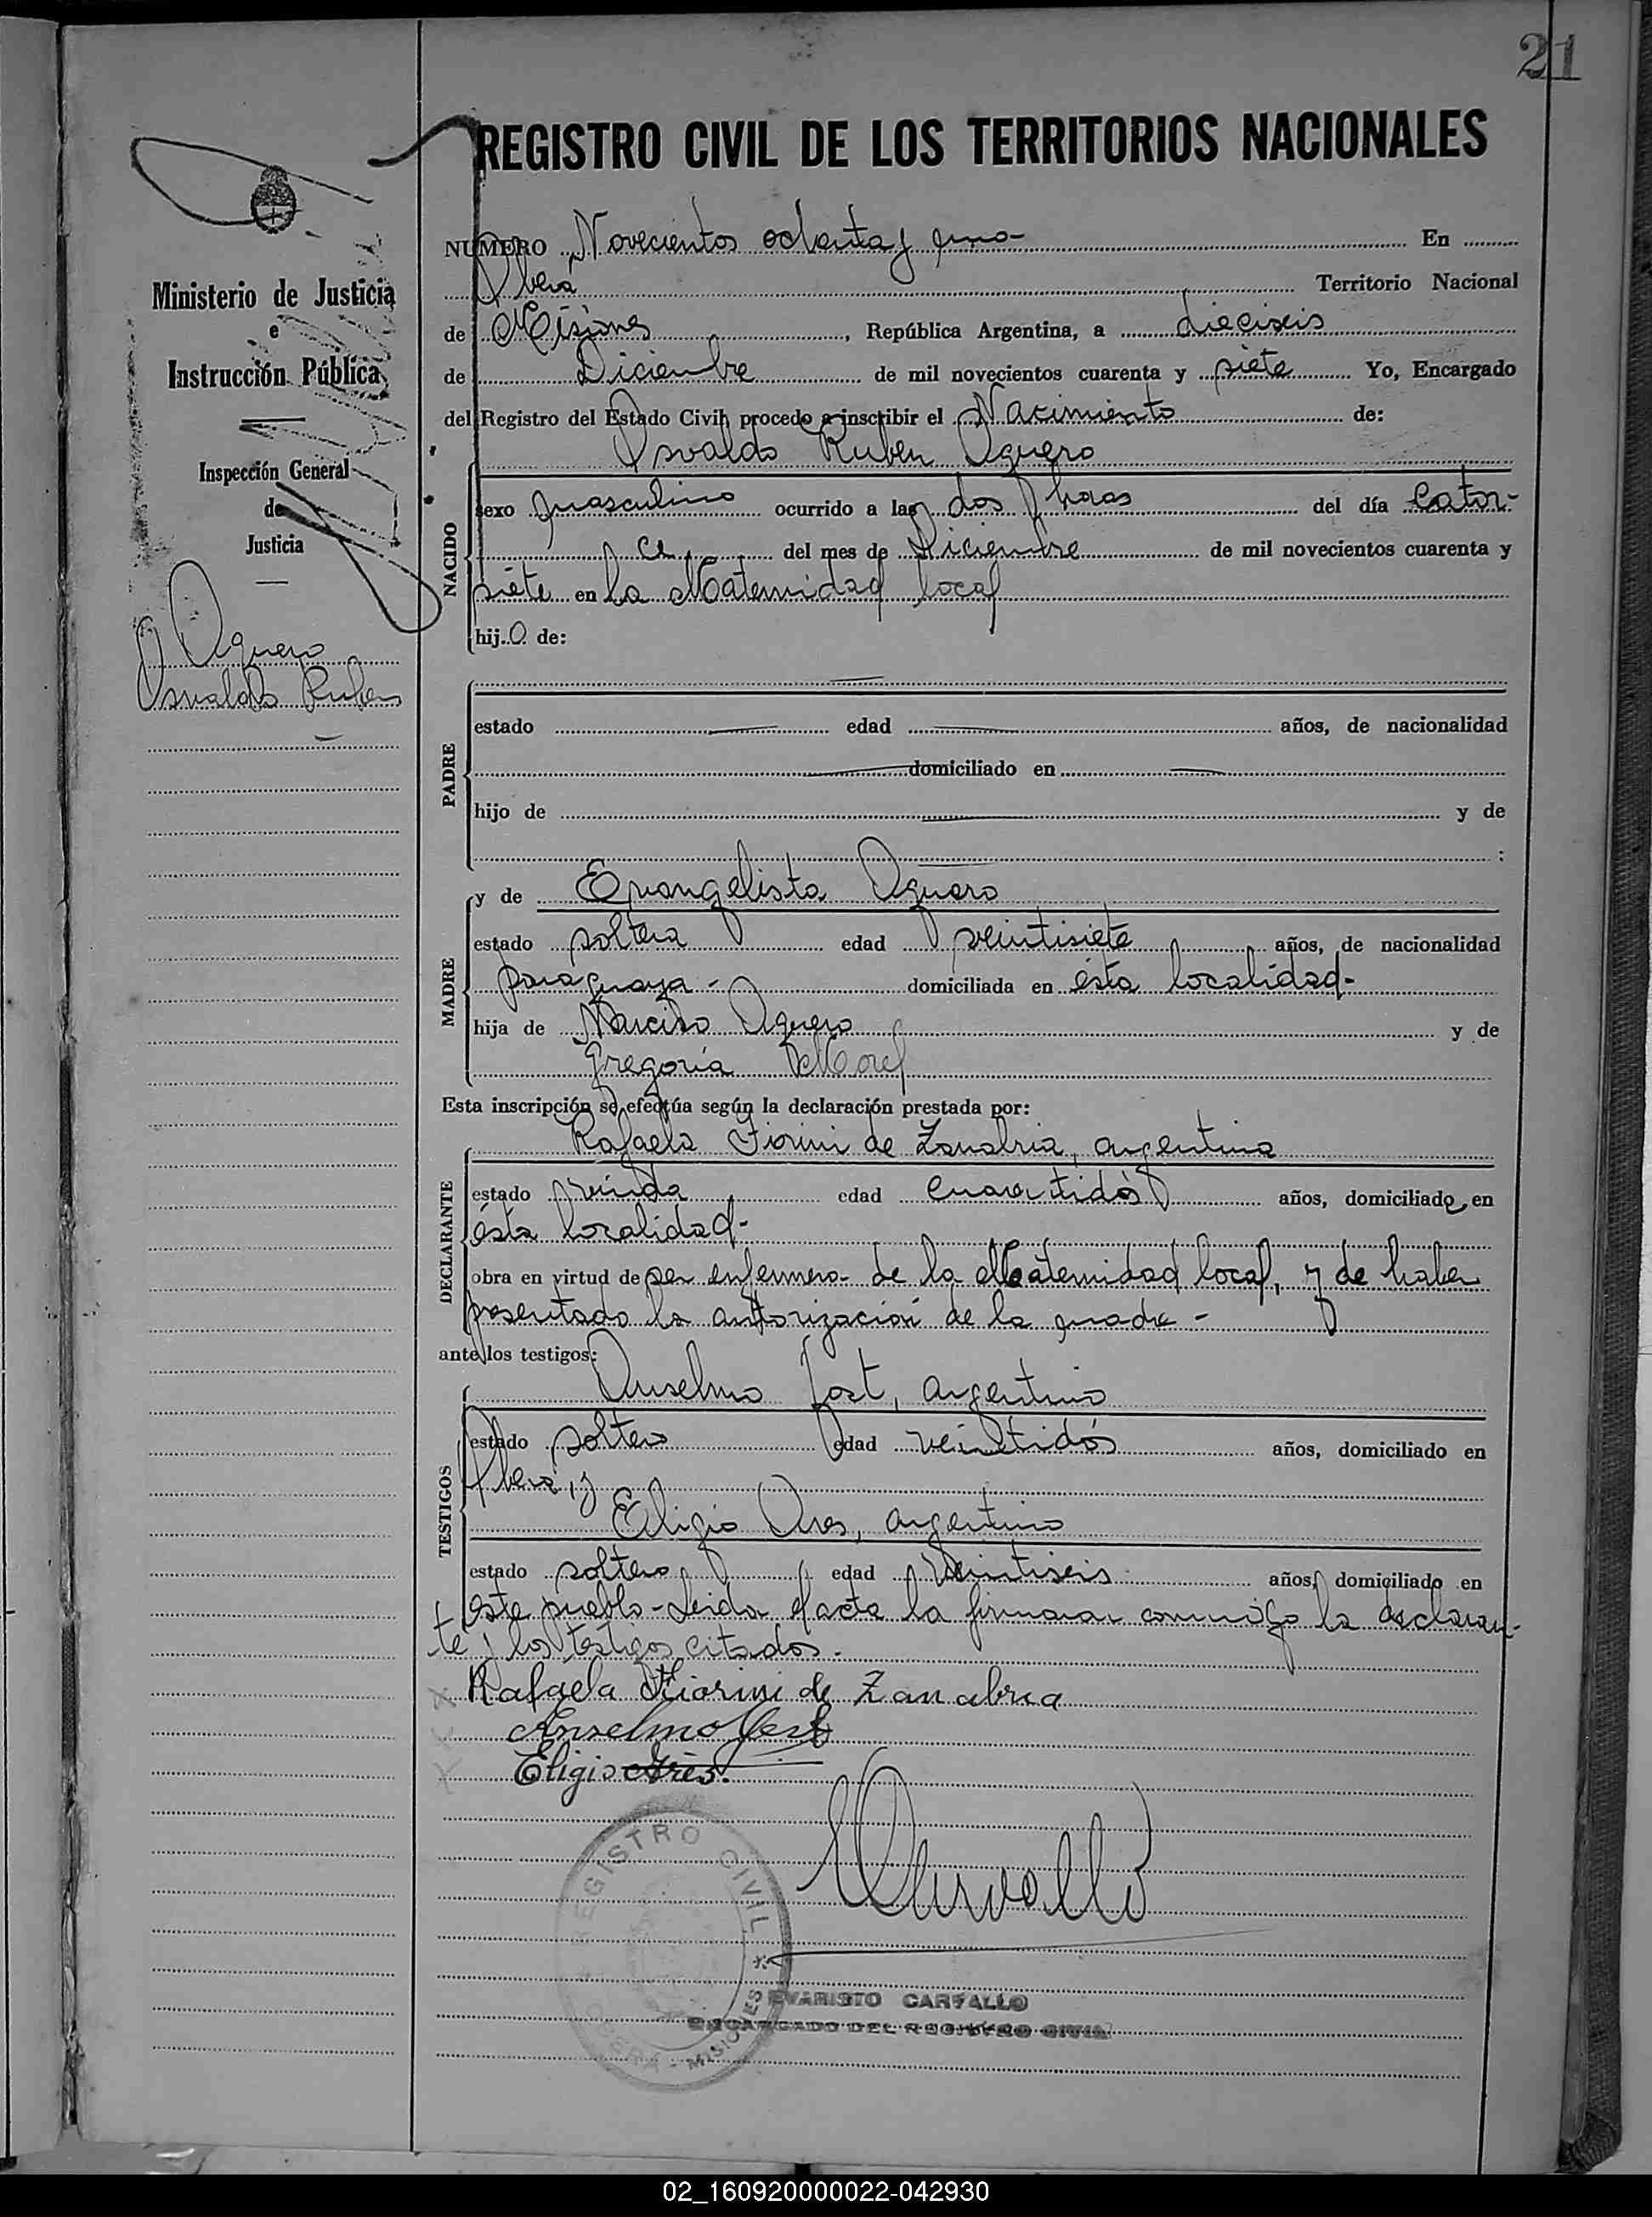 21
REGISTRO CIVIL DE LOS TERRITORIOS NACIONALES
Ministerio de Justicia
e
Instrucción Pública
Inspección General
de
Justicia
Aguero
Osvaldo Ruben
NUMERO Novecientos ochenta y uno- En
Oberá Territorio Nacional
de Misiones, República Argentina, a dieciseis
de Diciembre de mil novecientos cuarenta y siete Yo, Encargado
del Registro del Estado Civil, procedo a inscribir el Nacimiento de:
Osvaldo Ruben Aguero
NACIDO
sexo masculino ocurrido a las dos horas del día cator-
ce del mes de Diciembre de mil novecientos cuarenta y
siete en la Maternidad local
hijo de:
PADRE
estado edad años, de nacionalidad
domiciliado en
hijo de y de
:
MADRE
y de Evangelista Aguero
estado soltera edad veintisiete años, de nacionalidad
paraguaya- domiciliada en ésta localidad-
hija de Narciso Aguero y de
Gregoria Morel
Esta inscripción se efectúa según la declaración prestada por:
DECLARANTE
Rafaela Fiorini de Zanabria, argentina
estado viuda edad cuarentidós años, domiciliado en
ésta localidad-
obra en virtud de ser enfermera de la Maternidad local, y de haber
presentado la autorización de la madre -
ante los testigos:
TESTIGOS
Anselmo Jost, argentino
estado soltero edad veintidós años, domiciliado en
Oberá y
Eligio Ares, argentino
estado soltero edad veintiseis años, domiciliado en
este pueblo-Leida el acta la firmaron conmigo la declaran-
te y los testigos citados.
Rafaela Fiorini de Zanabria
Anselmo Jost
Eligio Ares.
ECarvallo
REGISTRO CIVIL
OBERA - MISIONES
EVARISTO CARVALLO
ENCARGADO DEL REGISTRO CIVIL
02_160920000022-042930